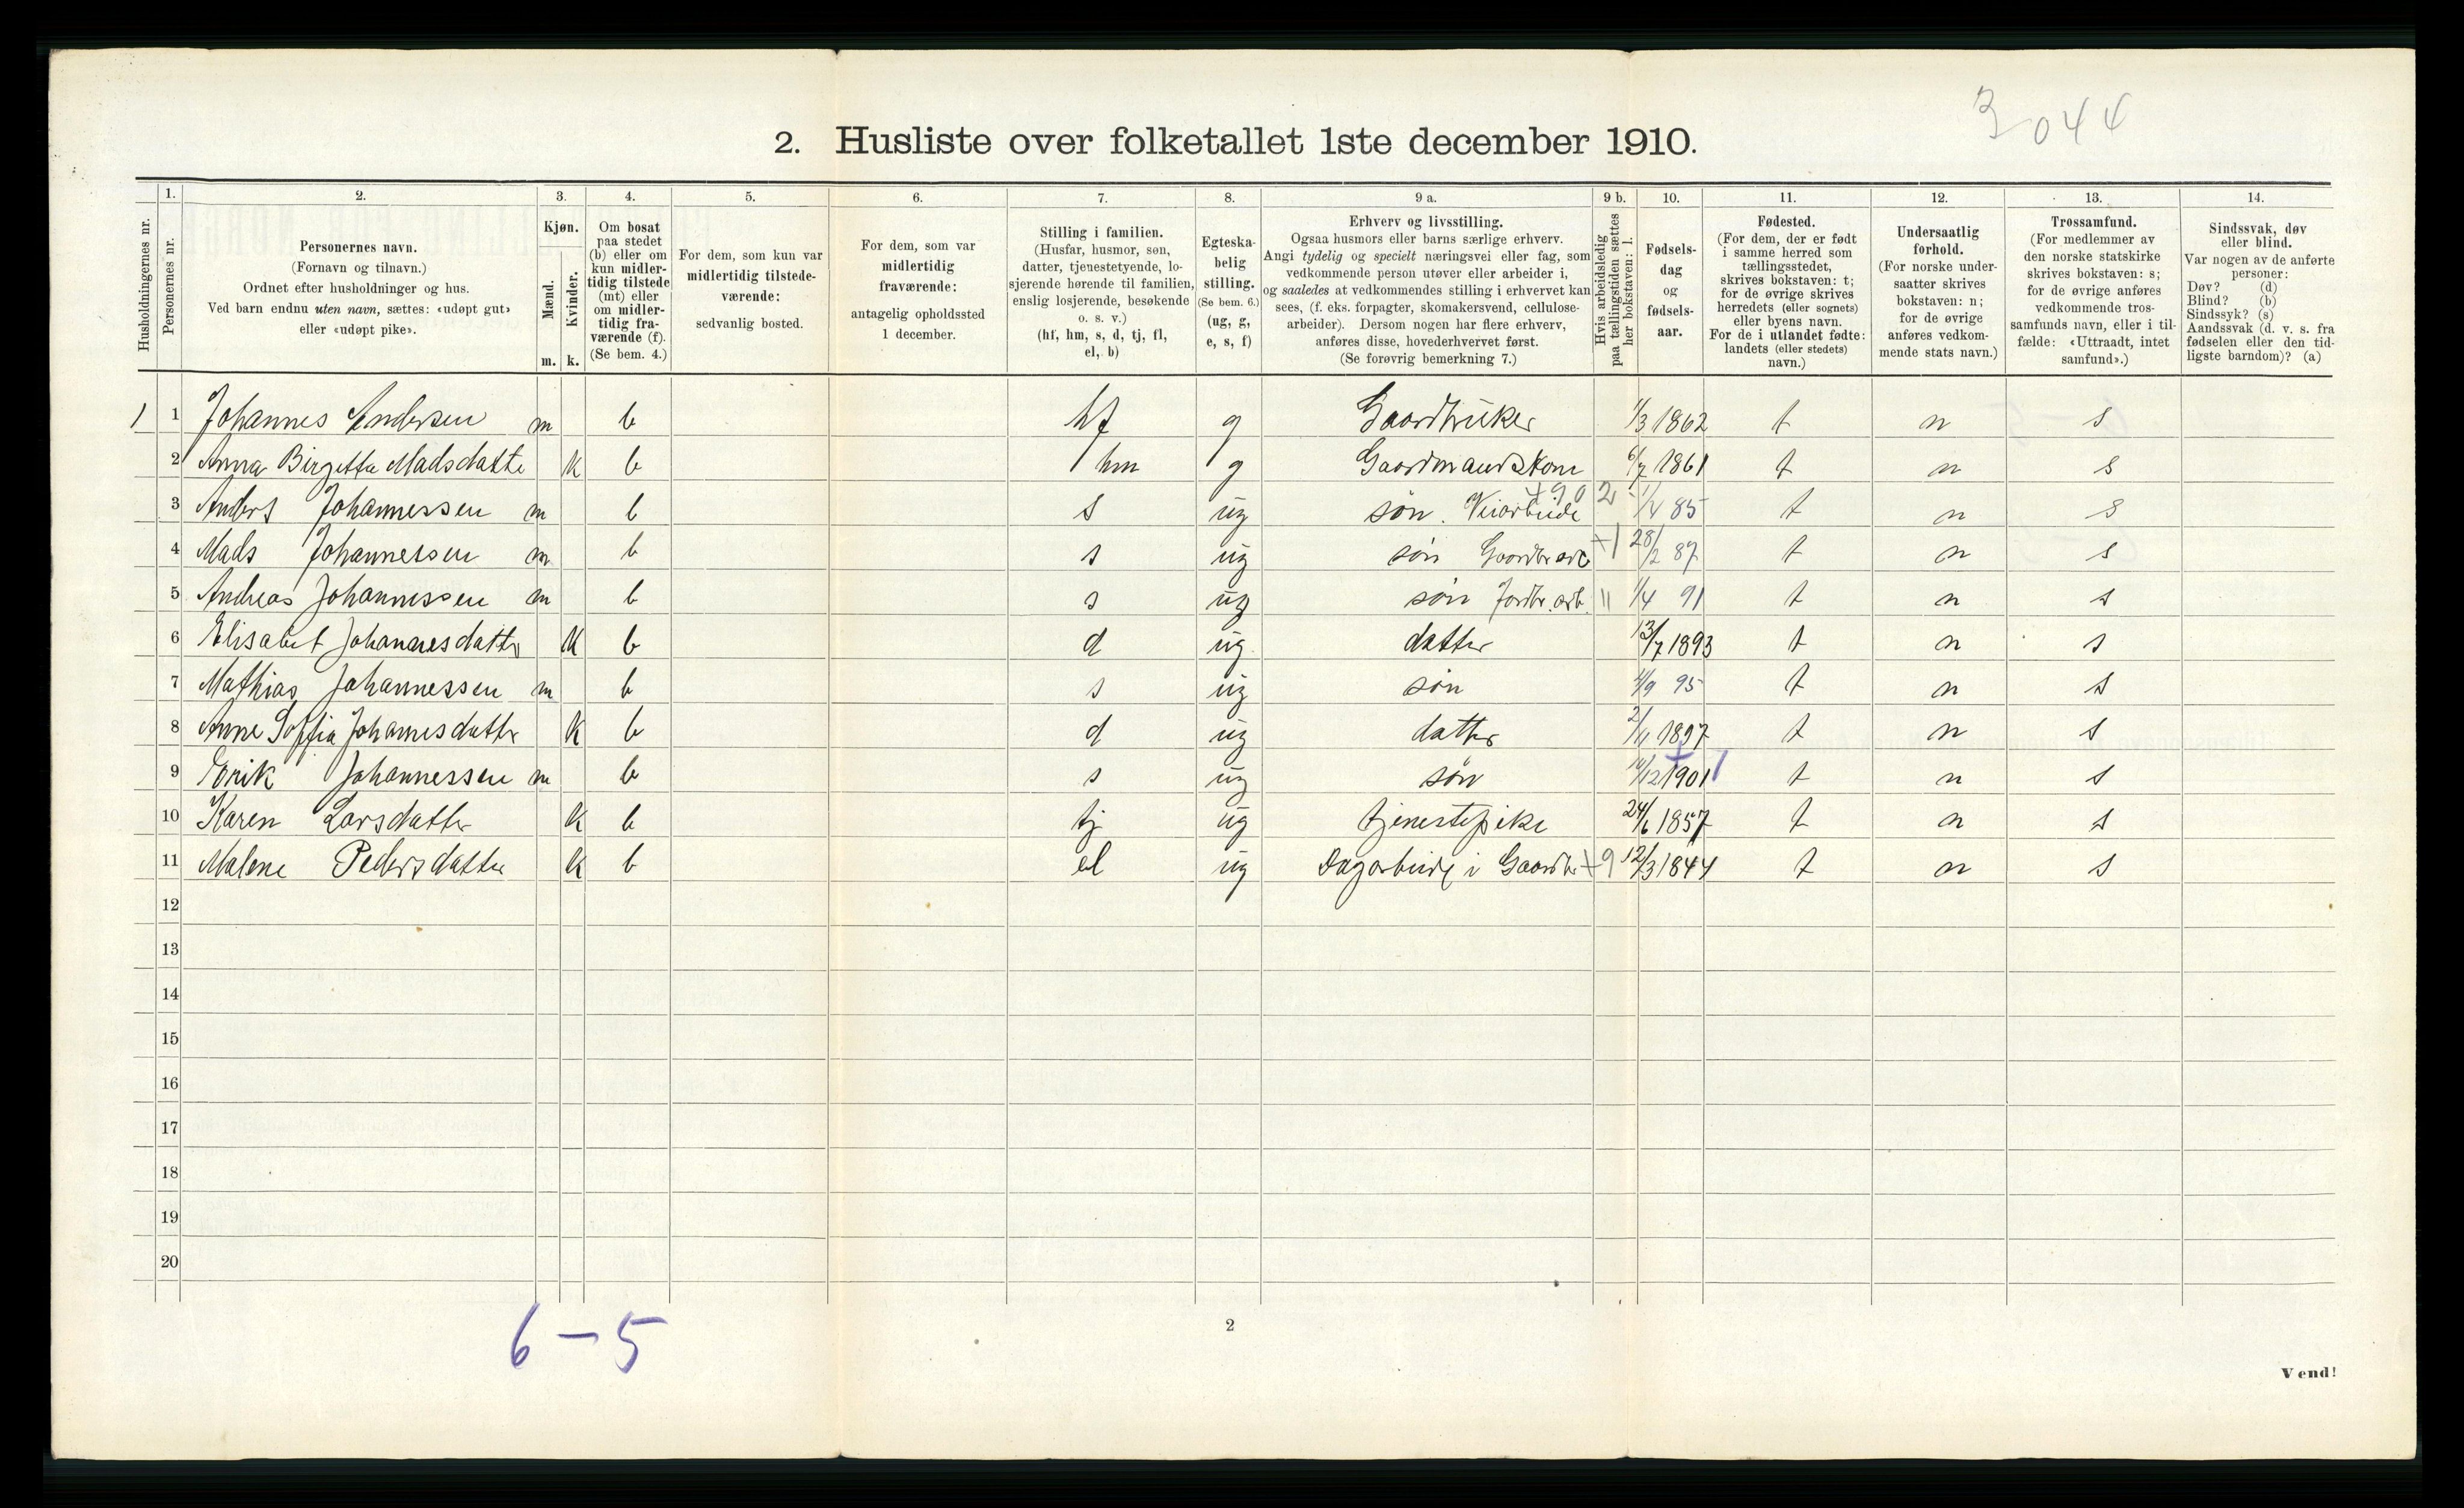 3044
2. Husliste over folketallet 1ste december 1910.
Husholdningernes nr.
1.
Personernes nr.
2.
Personernes navn.
(Fornavn og tilnavn.)
Ordnet efter husholdninger og hus.
Ved barn endnu uten navn, sættes: «udøpt gut»
eller «udøpt pike».
3.
Kjøn.
Mænd.
Kvinder.
m. k.
4.
Om bosat
paa stedet
(b) eller om
kun midler-
tidig tilstede
(mt) eller
om midler-
tidig fra-
værende (f).
(Se bem. 4.)
5.
For dem, som kun var
midlertidig tilstede-
værende:
sedvanlig bosted.
6.
For dem, som var
midlertidig
fraværende:
antagelig opholdssted
1 december.
7.
Stilling i familien.
(Husfar, husmor, søn,
datter, tjenestetyende, lo-
sjerende hørende til familien,
enslig losjerende, besøkende
o. s. v.)
(hf, hm, s, d, tj, fl,
el, b)
8.
Egteska-
belig
stilling.
(Se bem. 6.)
(ug, g,
e, s, f)
9 a.
Erhverv og livsstilling.
Ogsaa husmors eller barns særlige erhverv.
Angi tydelig og specielt næringsvei eller fag, som
vedkommende person utøver eller arbeider i,
og saaledes at vedkommendes stilling i erhvervet kan
sees, (f. eks. forpagter, skomakersvend, cellulose-
arbeider). Dersom nogen har flere erhverv,
anføres disse, hovederhvervet først.
(Se forøvrig bemerkning 7.)
9 b.
Hvis arbeidsledig
paa tællingstiden sættes
her bokstaven: l.
10.
Fødsels-
dag
og
fødsels-
aar.
11.
Fødested.
(For dem, der er født
i samme herred som
tællingsstedet,
skrives bokstaven: t;
for de øvrige skrives
herredets (eller sognets)
eller byens navn.
For de i utlandet fødte:
landets (eller stedets)
navn.)
12.
Undersaatlig
forhold.
(For norske under-
saatter skrives
bokstaven: n;
for de øvrige
anføres vedkom-
mende stats navn.)
13.
Trossamfund.
(For medlemmer av
den norske statskirke
skrives bokstaven: s;
for de øvrige anføres
vedkommende tros-
samfunds navn, eller i til-
fælde: «Uttraadt, intet
samfund».)
14.
Sindssvak, døv
eller blind.
Var nogen av de anførte
personer:
Døv? (d)
Blind? (b)
Sindssyk? (s)
Aandssvak (d. v. s. fra
fødselen eller den tid-
ligste barndom)? (a)
1 1 Johannes Andersen m b hf g Gaardbruker /3 1862 t n s
2 Anna Birgitta Madsdatte k b hm g Gaardmandskone 6/7 1861 t n s
3 Anders Johannessen m b s ug søn. Veiarbeide 1/4 85 t n s
4 Mads Johannessen m b s ug søn Gaardbr arb +1 28/2 87 t n s
5 Andreas Johannessen m b s ug søn Jordbr. arb. " 1/4 91 t n s
6 Elisabet Johannesdatter k b d ug datter 13/7 1893 t n s
7 Mathias Johannessen m b s ug søn 4/9 95 t n s
8 Anne Soffia Johannesdatter k b d ug datter 2/11 1897 t n s
9 Eorik Johannessen m b s ug søn /12 1901 t n s
10 Karen Larsdatter k b tj ug tjenestepike 24/6 1857 t n s
11 Malene Pedersdatter k b el ug Dagarbeide i Gaardbr +9 12/3 1844 t n s
12
13
14
15
16
17
18
19
20
6 – 5
2
Vend!